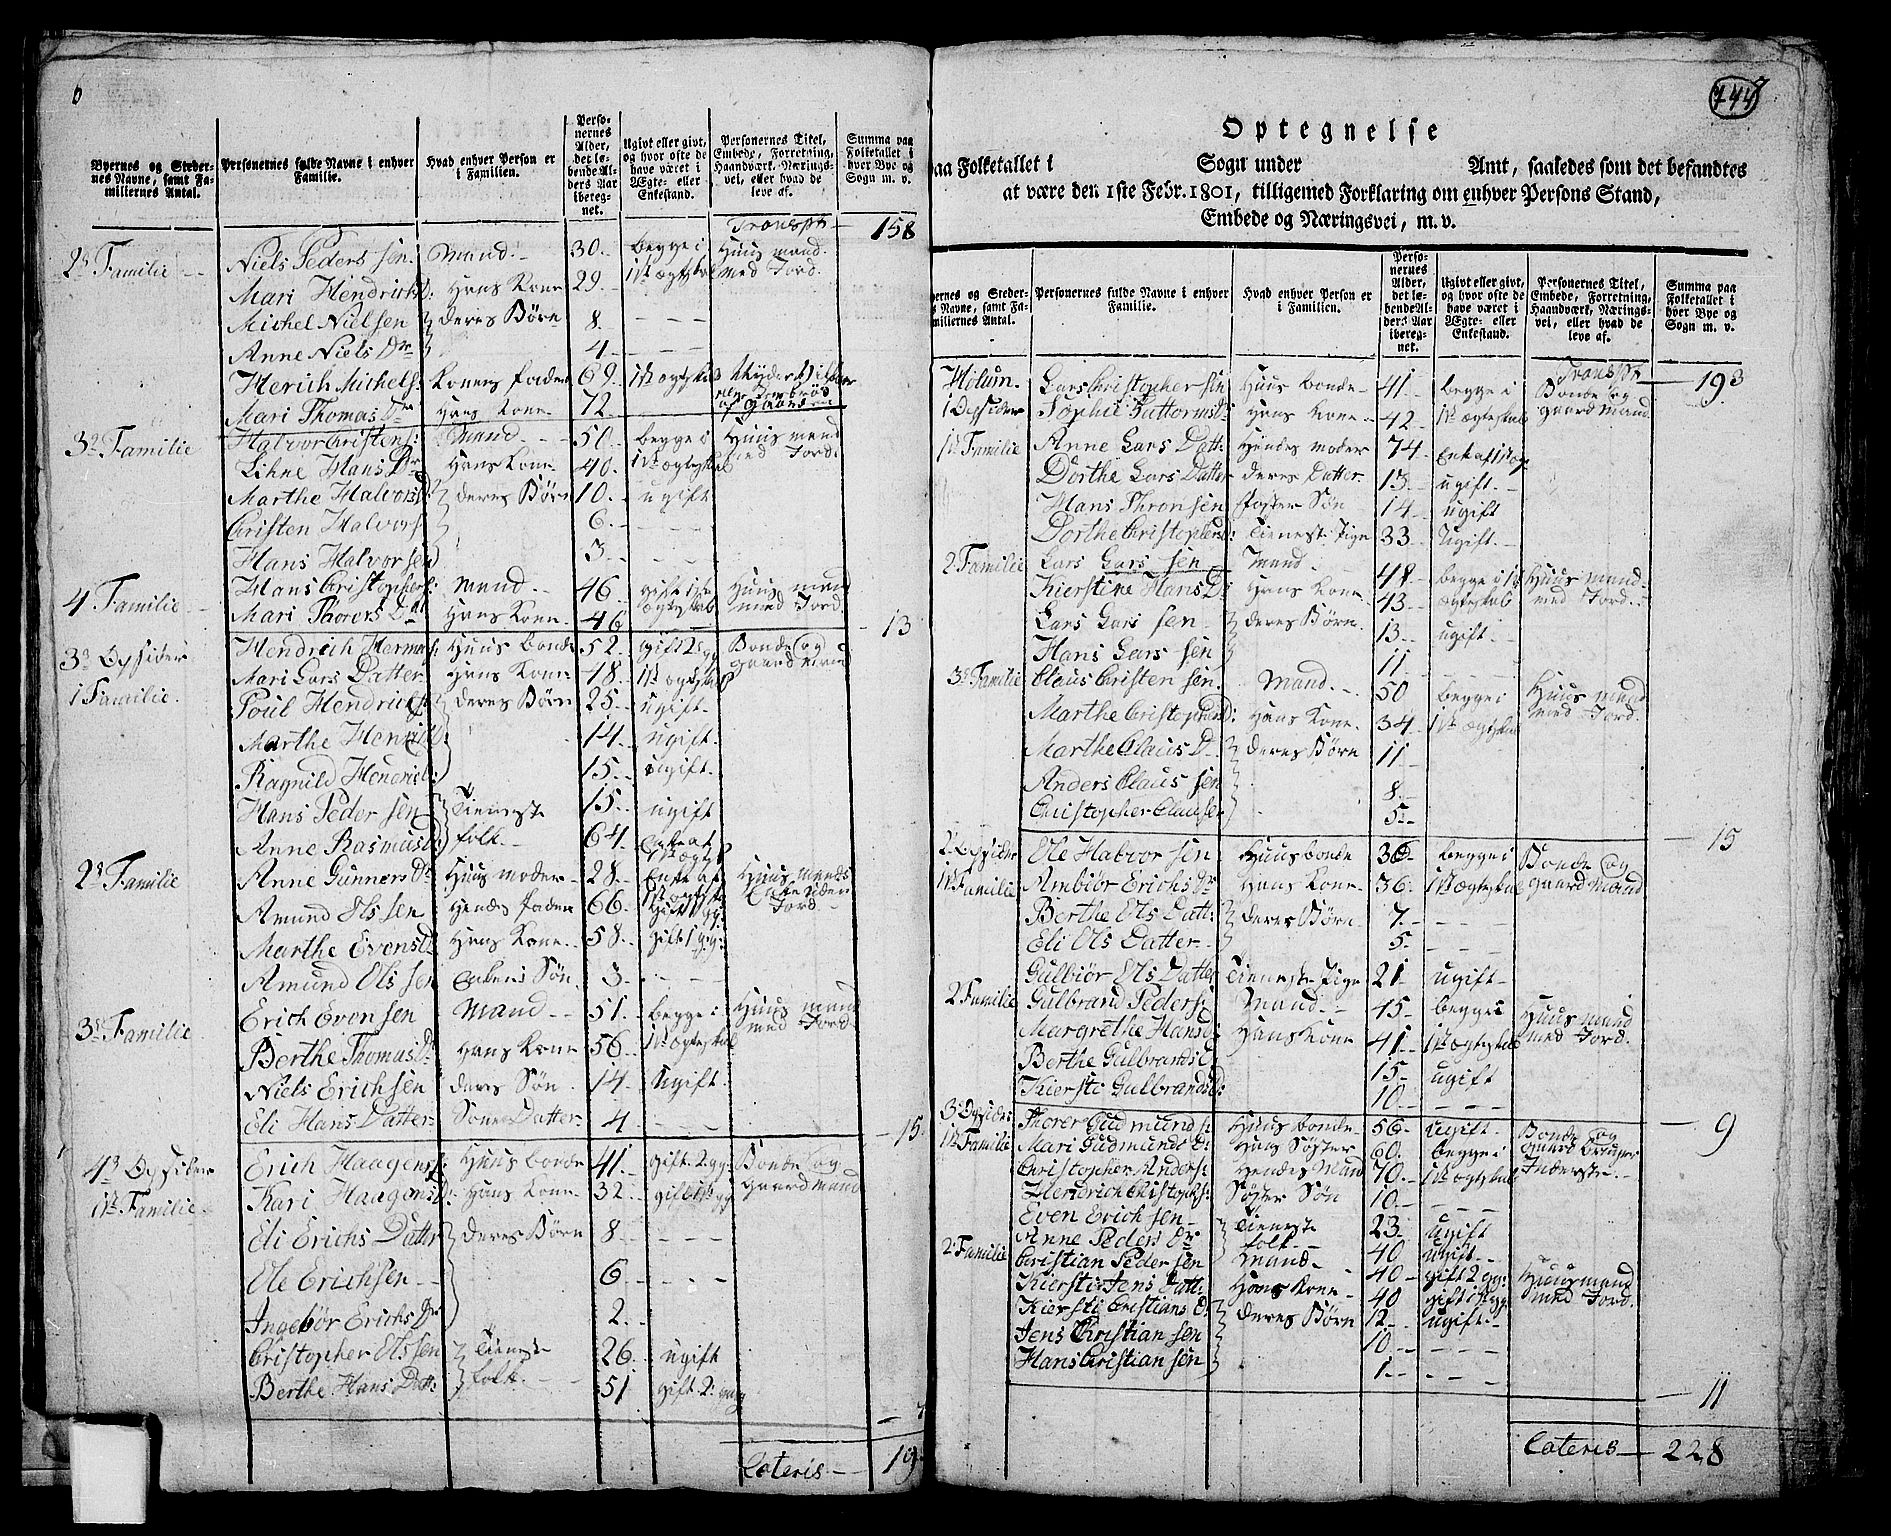 6
Byernes og Steder-nes Navne, samt Fa-milliernes Antal. Personernes fulde Navne i enhver Familie. Hvad enhver Person er i Familien. Perso-nernes Alder, det le-bende Al-ders Aar ibereg-net. Ugivt eller givt, og hvor ofte de have været i Ægte- eller Enkestand. Personernes Titel, Embede, Forretning, Haandværk, Nærings-vei, eller hvad de leve af. Summa paa Folketallet i hver Bye og Sogn m. v.
Transpt — 158
2de Familie Niels Peders sen. Mand. 30. begge i Huus mand
Mari Hendrichs D: Hans Kone 29. 1ste ægteskab med Jord.
Michel Nielsen deres Børn 8.
Anne Niels Dr 4.
Herich Michels: Konens fader 69. 1ste ægteskab
Mari Thomas Dtr Hans Kone 72.
3die Familie Halvor Cristens: Mand 50. begge i Huus mand
Lihne Hans Dr Hans Kone 40. 1ste ægteskab med Jord.
Marthe Halvors D deres Børn 10. ugift
Cristen Halvors: 6.
Hans Halvorsen 3.
4 Familie Hans Cristophers: Mand. 46. gift 1ste Huus mand
Mari Thorers Dat Hans Kone 46 ægteskab med Jord. 13
3die Opsider Hendrich Herma: Huus bonde 52. gift 2 gg Bonde og
1 Familie. Mari Lars Datter Hans Kone 48. 1ste ægteskab gaard mand
Poul Hendrichs: deres Børn 25. ugift.
Marthe Henrichs: 14. ugift.
Ragnild Henrichs: 15. ugift.
Hans Peder sen Tieneste 15. ugift
Anne Rasmus D: folk. 64. Enke af 1ste ægt
2de Familie Anne Gunners Dr Huus moder 28. Enke af Huus mands
Amund Ols sen Hendes fader 66. Gift 1 gg. Enke uden Jord.
Marthe Evens D Hans Kone 58. gift 1 gg:
Amund Ols sen Enkens Søn 3.
3die Familie Erich Even sen Mand 51. begge i Huus mand
Berthe Thomas Dr Hans Kone 56. 1ste ægteskab med Jord.
Niels Erichsen deres Søn. 14. Ugift.
Eli Hans Datter Sones Datter 4. 15.
4de Opsider Erich Haagens: Huus bonde 41. gift 2 gg: Bonde og
1ste Familie. Kari Haagens D: Hans Kone 32. gift 1ste gg gaard mand
Eli Erichs Datter deres Børn 8
Ole Erichsen 6.
Ingebør Erichs Dr 2.
Cristopher Ols sen Tieneste 26. ugift
Berthe Hans Datt: folk. 51 gift 2: gg 7
Lateris — 19

744
Optegnelse
paa Folketallet i Sogn under Amt, saaledes som det befandtes
at være den 1ste Febr. 1801, tilligemed Forklaring om enhver Persons Stand,
Embede og Næringsvei, m. v.
ernes og Steder-s Navne, samt Fa-milliernes Antal. Personernes fulde Navne i enhver Familie. Hvad enhver Person er i Familien. Perso-nernes Alder, det le-bende Al-ders Aar ibereg-net. Ugivt eller givt, og hvor ofte de have været i Ægte- eller Enkestand. Personernes Titel, Embede, Forretning, Haandværk, Nærings-vei, eller hvad de leve af. Summa paa Folketallet i hver Bye og Sogn m. v.
Transpt — 193
Hotum. Lars Christopher sen Huus bonde 41. begge i Bonde og
1 Opsider Sophie Guttorms D: Hans Kone 42. 1ste ægteskab gaard mand
1ste Familie Anne Lars Datt: Hendes moder 74.
Dorthe Lars Datter deres Datter 13. ugift.
Hans Thron sen foster Søn 14. ugift
Dorthe Christophers D: Tieneste Pige 33. Ugift.
2 Familie Lars Lars sen Mand 48. begge i 1ste Huus mand
Kierstine Hans D: Hans Kone 43. ægteskab med Jord.
Lars Lars sen deres Børn 13. ugift.
Hans Lars sen 11.
3die Familie Claus Cristen sen. Mand. 50 begge i Huus mand
Marthe Cristophers D: Hans Kone. 34. 1ste ægteskab med Jord.
Marthe Claus D deres Børn 11.
Anders Claus sen 8.
Christopher Claus sen 5. 15
2de Opsider Ole Halvor sen Huusbonde 36. begge i Bonde og
1ste Familie Ambiør Erichs Dr Hans Kone 36. 1ste ægteskab gaard mand
Berthe Ols Datt: deres Børn 7.
Eli Ols Datter 5.
Gulbiør Ols Datter Tieneste Pige 21. ugift
2 Familie Gulbrand Peders: Mand. 45. begge i Huus mand
Margrethe Hans D: Hans Kone 41. 1ste ægteskab med Jord.
Berthe Gulbrands D 15 ugift
Kiersti Gulbrands D: 10. 9
3die Opsider Thorer Gudmunds: Huus bonde 56. ugift. Bonde og
1ste Familie Mari Gudmunds D: Hans Søster 60. begge i gaard bruger
Christopher Anders: Hendes Mand 70. 1ste ægteskab Inderste.
Henrich Christophs: Søster Søn 10.
Even Erich sen Tieneste 23. ugift
Anne Peders Dr folk. 40 ugift.
2 Familie Christian Peder sen Mand 40 gift 2 gg: Huusmand
Kiersti Jens Datt: Hans Kone 40 gift 1ste gg med Jord.
Kiersti Cristians D: deres Børn 12. ugift.
Jens Christian sen 10.
Hans Christian sen 1. 11
Lateris — 228